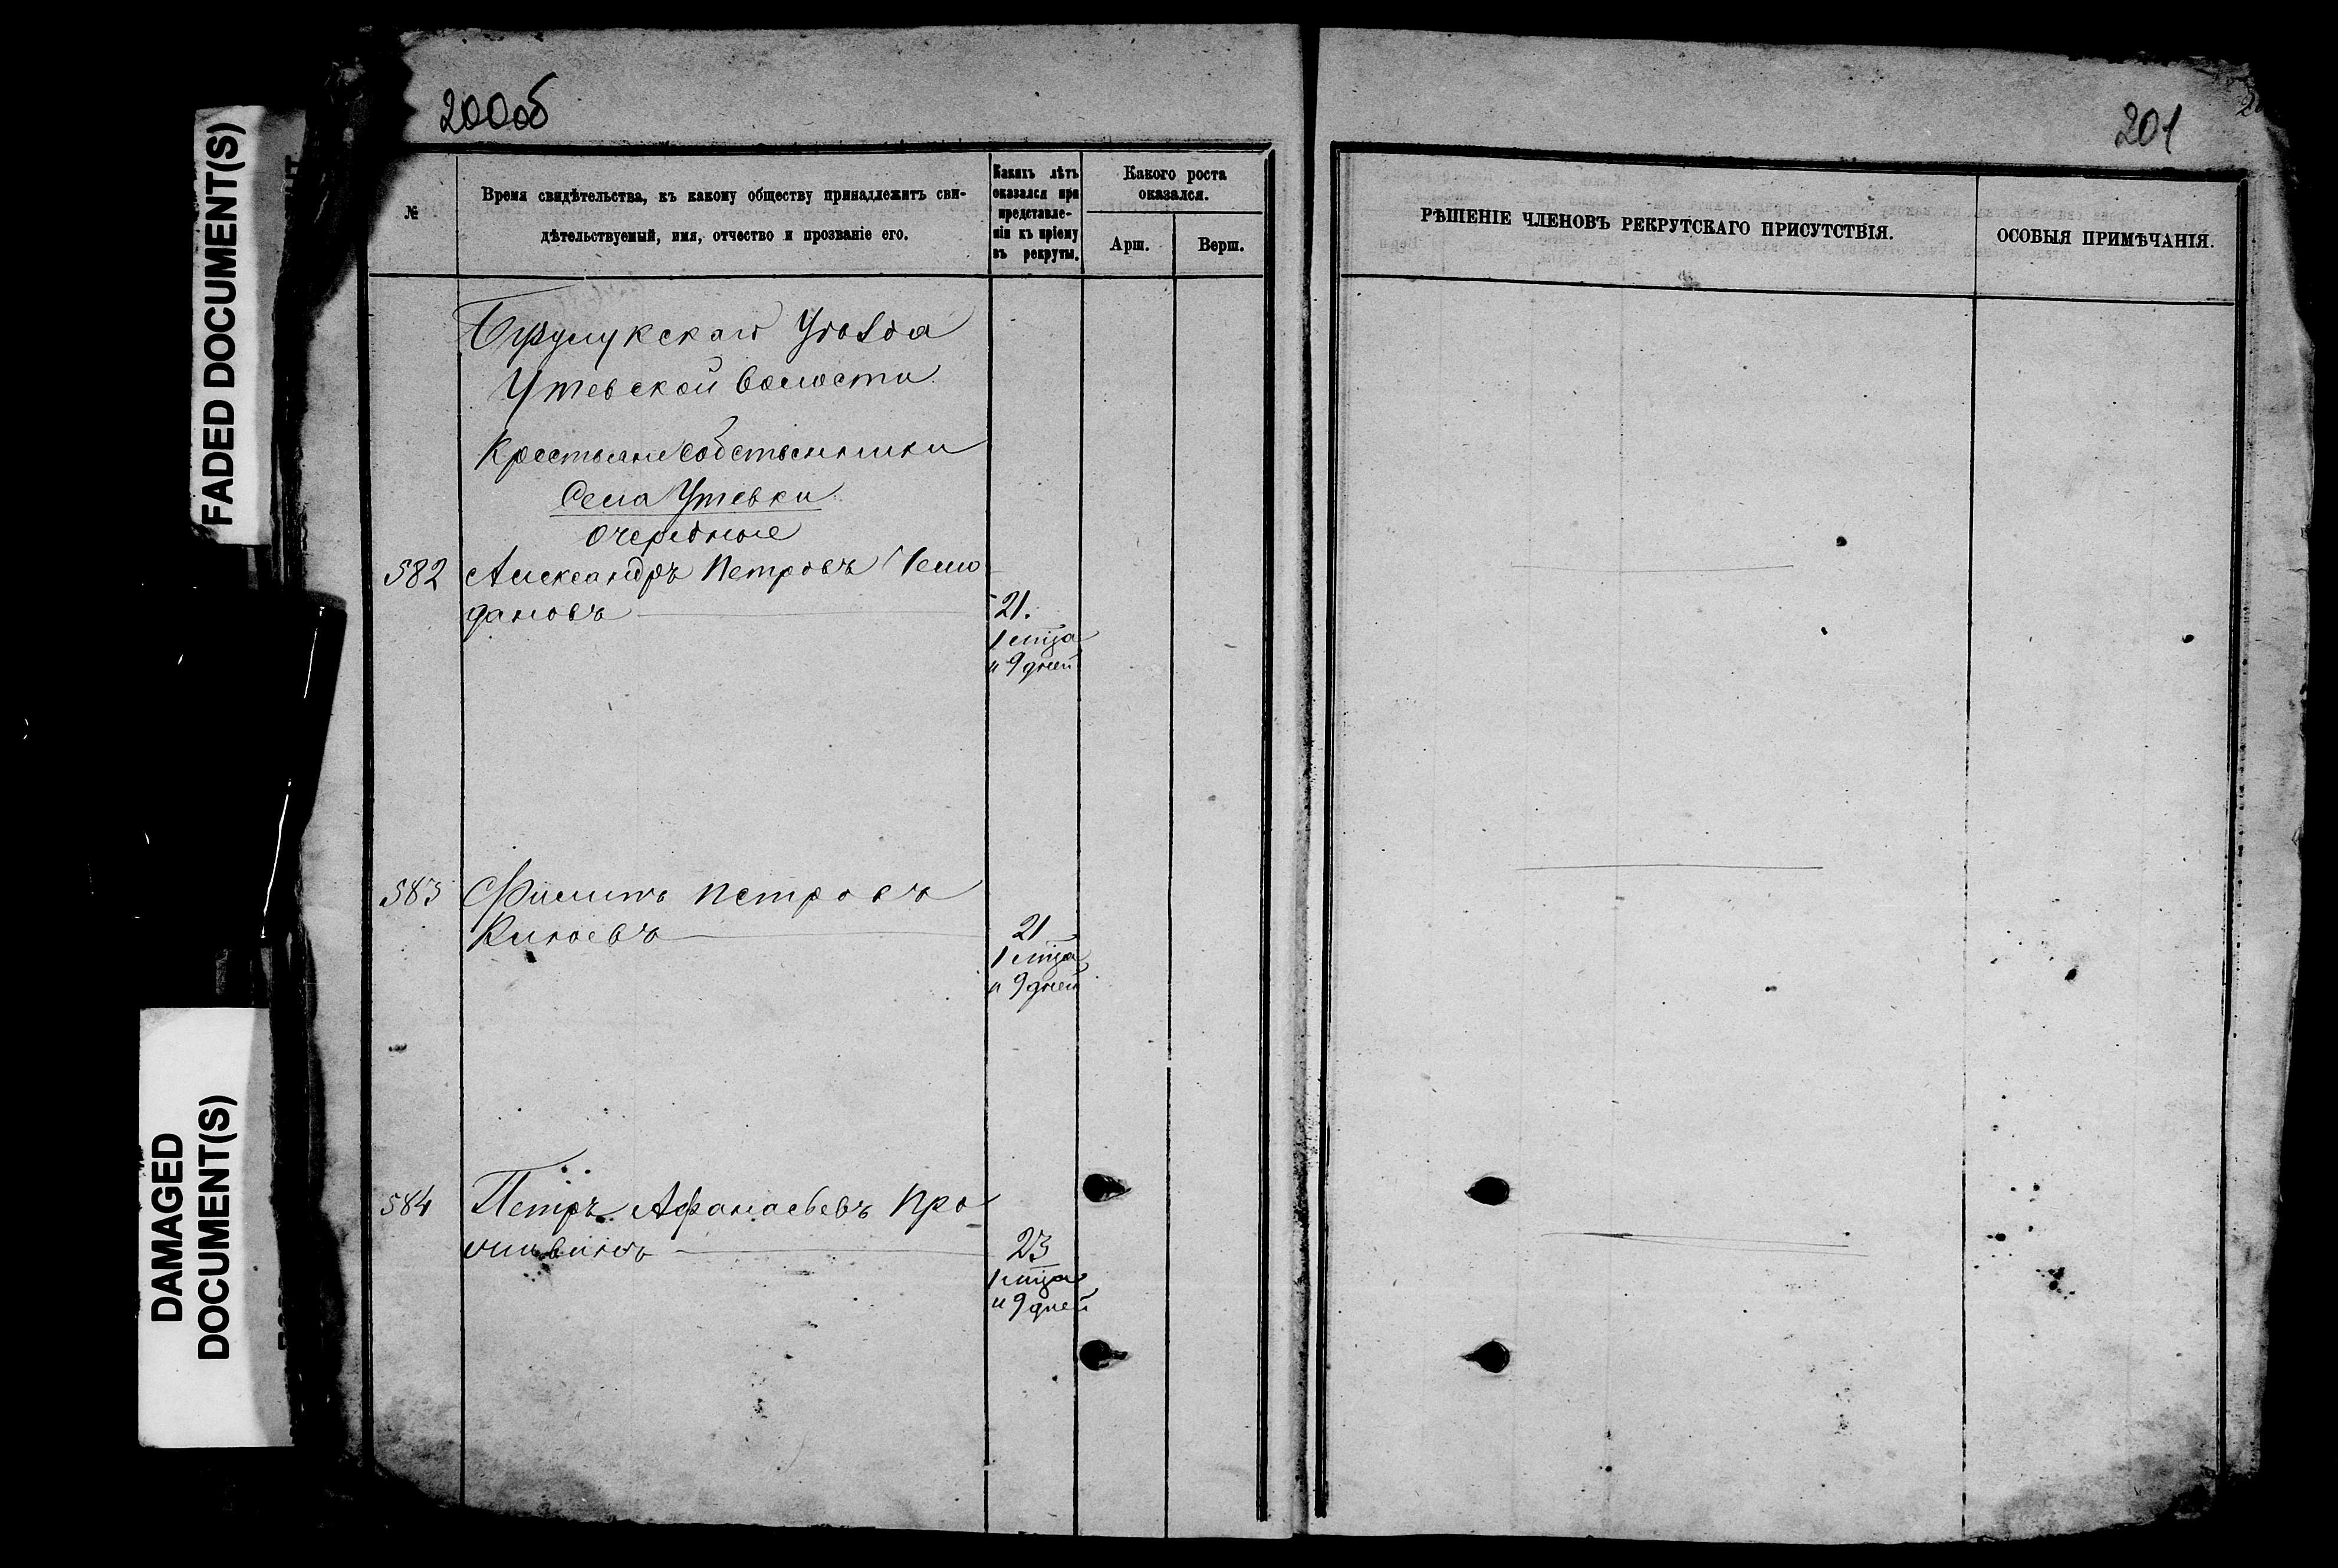 200об
201
FADED DOCUMENT(S)
DAMAGED
DOCUMENT(S)
№
Время свидѣтельства, къ какому обществу принадлежитъ сви-
дѣтельствуемый, имя, отчество и прозваніе его.
Какихъ лѣтъ
оказался при
представле-
ніи къ пріему
въ рекруты.
Какого роста
оказался.
Арш.
Верш.
РѢШЕНІЕ ЧЛЕНОВЪ РЕКРУТСКАГО ПРИСУТСТВІЯ.
ОСОБЫЯ ПРИМѢЧАНІЯ.
Бузулукскаго Уѣзда
Утевской волости
Крестьяне собственники
Села Утевки
очередные
582 Александръ Петровъ Чемо
дановъ
21.
1 мца
и 9 дней
583 Филипъ Петровъ
Киняевъ
21
1 мца
и 9 дней
584 Петръ Афанасьевъ Про
23
1 мца
и 9 дней